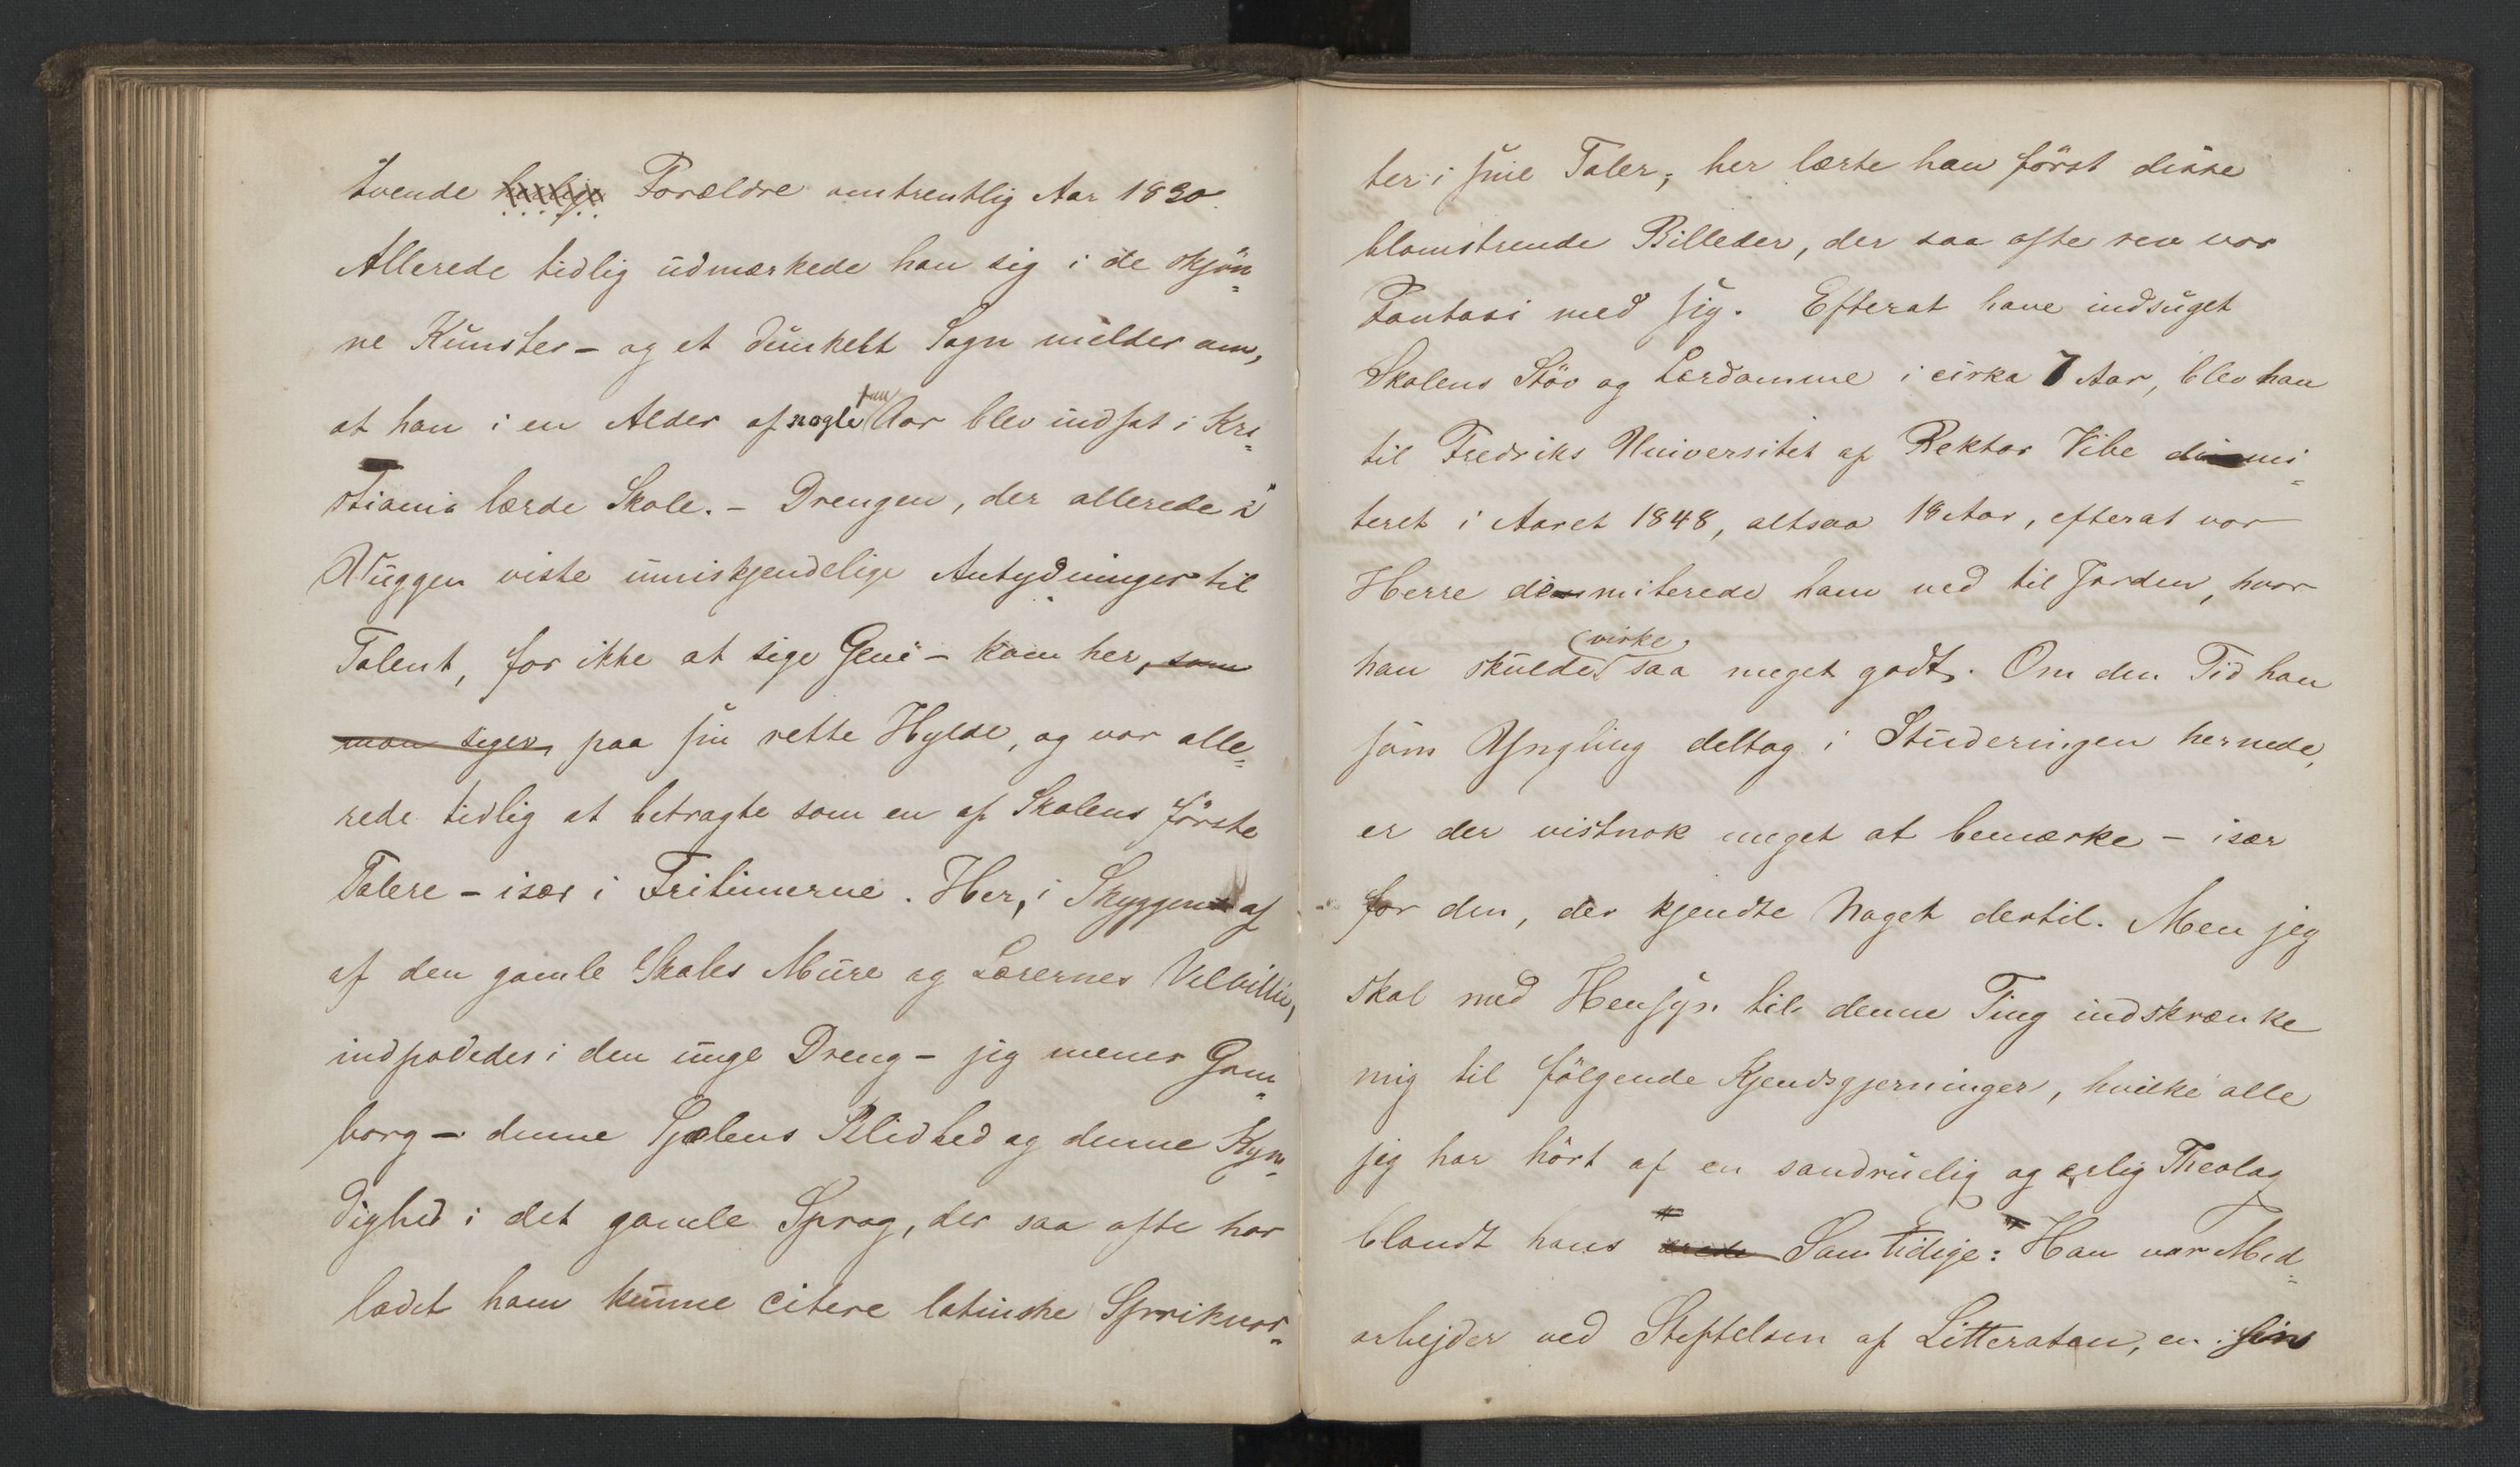 tvende Forældre omtrentlig Aar 1830.
Allerede tidlig udmærkede han sig i de skjön„
ne Kunster – og et dunkelt Sagn melder om,
at han i en Alder af nogle faa Aar blev indsat i Kri„
stiania lærde Skole. – Drengen, der allerede i
Vuggen viste umiskjendelige Antydninger til
Talent, for ikke at sige Geni – kom her, som
man siger, paa sin rette Hylde, og var alle„
rede tidlig at betragte som en af Skolens förste
Talere – især i Fritimerne. Her, i Skyggen af
af den gamle Skoles Mure og Lærernes Velvillie,
indpodedes i den unge Dreng – jeg mener Gam„
borg – denne Sjælens Blidhed og denne Kyn„
dighed i det gamle Sprog, der saa ofte har
ladet ham kunne citere latinske Sprikvor„
ter i sine Taler; her lærte han först disse
blomstrende Billeder, der saa ofte rev vor
Fantasi med sig. Efterat have indsuget
Skolens Stöv og Lærdomme i cirka 7 Aar, blev han
til Fredriks Universitet af Rektor Vibe dimi„
teret i Aaret 1848, altsaa 18 Aar, efterat vor
Herre dimiterede ham ned til Jorden, hvor
han skulde virke saa meget godt. Om den Tid han
som Yngling deltog i Studeringen hernede,
er der vistnok meget at bemærke – især
for den, der kjendte Noget dertil. Men jeg
skal med Hensyn til denne Ting indskrænke
mig til fölgende Kjendsgjerninger, hvilke alle
jeg har hört af en sandruelig og ærlig Theolog
blandt hans Samtidige: Han var Med„
arbejder ved Stiftelsen af Litteraten, en i sin